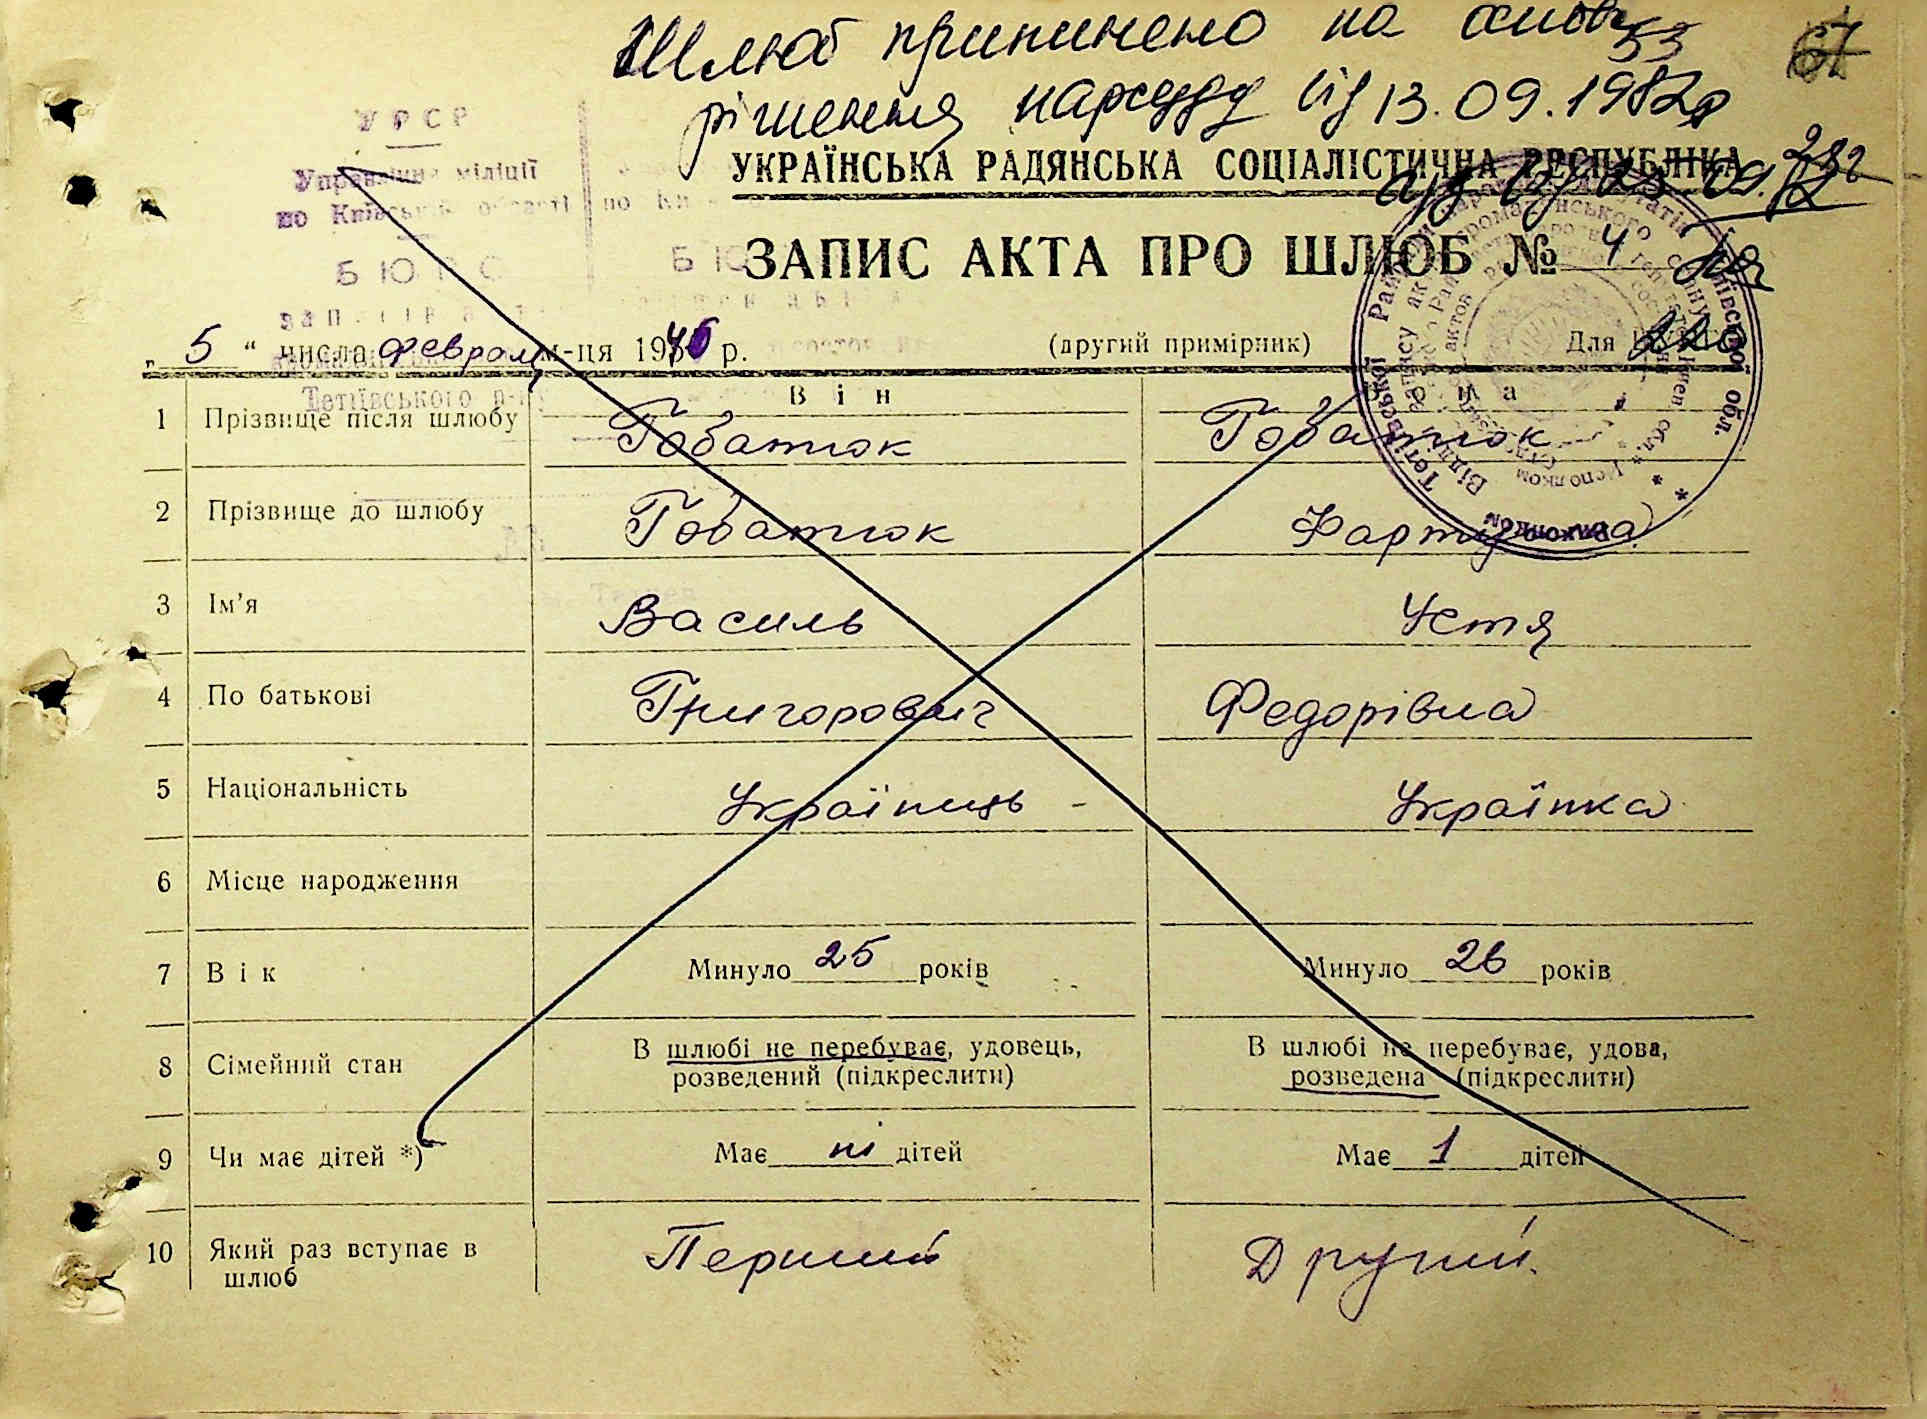 Шлюб припинено на основі
53
67
рішення нарсуду від 13.09.1982р
УРСР
Управління міліції
по Київській області
УКРАЇНСЬКА РАДЯНСЬКА СОЦІАЛІСТИЧНА РЕСПУБЛІКА
БЮРО
ЗАПИС АКТА ПРО ШЛЮБ № 4
„ 5 “ числа феврал м-ця 1946 р. (другий примірник) Для
Тетіївського р-ну
Він Вона
1 Прізвище після шлюбу Гобатюк Гобатюк
2 Прізвище до шлюбу Гобатюк
3 Ім'я Василь Устя
4 По батькові Григорович Федорівна
5 Національність Українець Українка
6 Місце народження
7 Вік Минуло 25 років Минуло 26 років
8 Сімейний стан В шлюбі не перебуває, удовець, В шлюбі не перебуває, удова,
розведений (підкреслити) розведена (підкреслити)
9 Чи має дітей *) Має ні дітей Має 1 дітей
10 Який раз вступає в Перший Другий.
шлюб